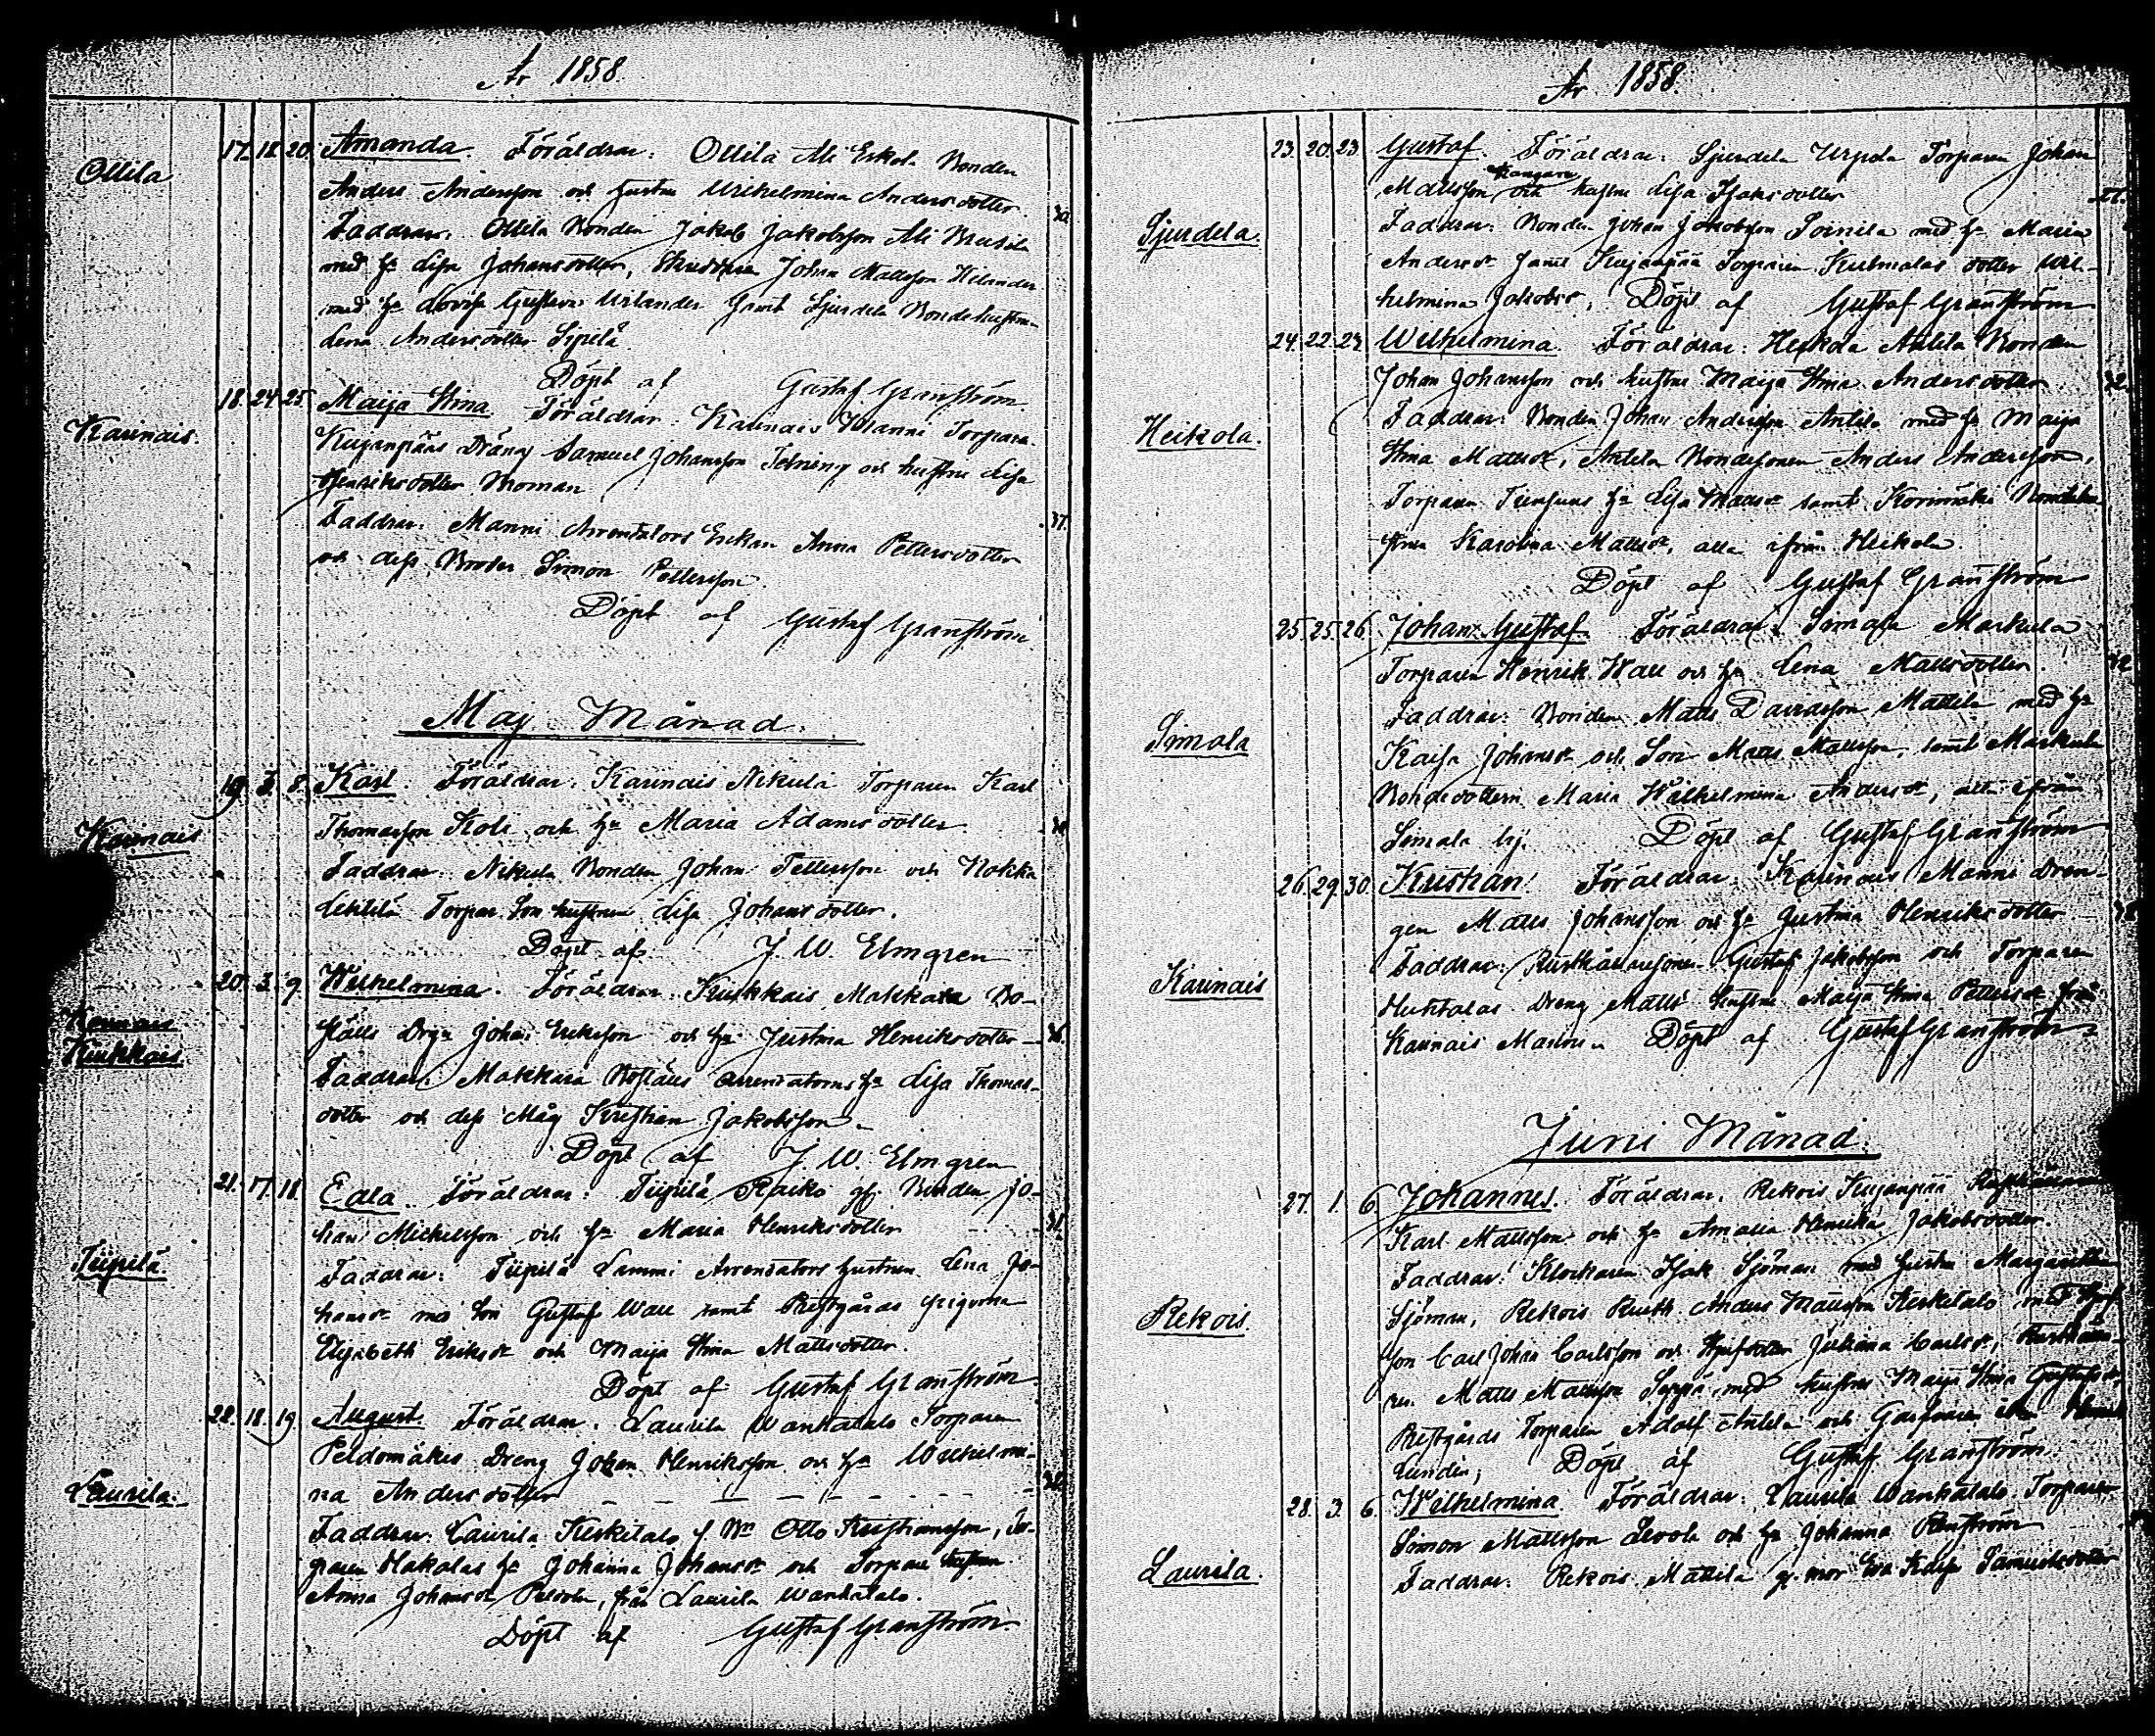 År 1858.
Ollila
17. 18. 20. Amanda. Föräldrar: Ollila Ali Eskola Bonden
Anders Andersson och hustru Wilhelmina Andersdotter.
Faddrar: Ollila Bonden Jakob Jakobsson Ali
med hu Lisa Johansdotter, Johan Mattsson Helander
med hu Lovisa Gustava Urlander samt Sjundela Bondehustrun
Lena Andersdotter Sipilä
Döpt af Gustaf Granström.
Karinais.
18. 24. 25. Maija Stina. Föräldrar: Karinais Torparen
Kujanpääs Dräng Samuel Johansson och hustru Lisa
Henriksdotter Woman
Faddrar: Manni Arrendators Enkan Anna Pettersdotter
och dess Broder Simon Pettersson.
Döpt af Gustaf Granström
37.
May Månad.
Karinais
19. 3. 8. Karl. Föräldrar: Karinais Nikula Torparen Karl
Thomasson Koli och hu Maria Adamsdotter.
Faddrar: Nikula Bonden Johan Pettersson och
Torpar Son hustrun Lisa Johansdotter.
Döpt af J. W. Elmgren
Kiukkais.
20. 3. 9. Wilhelmina. Föräldrar: Kiukkais Makkara Bo-
ställs Drgn Johan Eriksson och hu Justina Henriksdotter
36.
Faddrar: Makkara Boställs arrendatorns hu Lisa Thomas-
dotter och dess Måg Kristian Jakobsson
Döpt af J. W. Elmgren
Tiipilä.
21. 17. 18. Edla. Föräldrar: Tiipilä Raiko Bonden Jo-
han Michelsson och hu Maria Henriksdotter
Faddrar: Tiipilä Lammi Arrendators hustrun Lena Jo-
hansdr med Son Gustaf Wall samt Prestgårds
Elisabeth Eriksdr och Maija Stina Mattsdotter.
Döpt af Gustaf Granström
Laurila.
22. 18. 19. August. Föräldrar: Laurila Wanhatalo Torparen
Peldomäkis Dreng Johan Henriksson och hu Wilhelmi-
na Andersdotter
Faddrar: Laurila Keskitalo Otto Kristiansson, Tor-
paren Hakalas hu Johanna Johansdr och Torpare hustrun
Anna Johansdr Peldola, från Laurila Wanhatalo.
Döpt af Gustaf Granström.
År 1858.
Sjundela.
23. 20. 23 Gustaf. Föräldrar: Sjundela Torparen Johan
Kangare
Mattsson och hustru Lisa Isaksdotter
Faddrar: Bonden Johan Jakobsson med hu Maria
Andersdr samt Kujanpää Torparen dotter Wil-
helmina Jakobsdr, Döpt af Gustaf Granström
Heikola.
24. 22. 24. Wilhelmina. Föräldrar: Heikola Anttila Bonden
Johan Johansson och hustru Maija Stina Andersdotter
32.
Faddrar: Bonden Johan Andersson Anttila med hu Maija
Stina Mattsdr, Anttila Bondesonen Anders Andersson,
Torparen hu Lisa Mattsdr samt Korinmäki
Karolina Mattsdr, alla ifrån Heikola.
Döpt af Gustaf Granström
Simala
25. 25. 26. Johan Gustaf. Föräldrar: Simala Markula
Torparen Henrik Wall och hu Lena Mattsdotter.
Faddrar: Bonden Matts Davidsson Mattila med hu
Kaisa Johansdr och Son Matts Mattsson, samt Markula
Bondedottern Maria Wilhelmina Andersdr, alla ifrån
Simala by. Döpt af Gustaf Granström
Karinais
26. 29. 30. Kristian. Föräldrar: Karinais Manni Dren-
gen Matts Johansson och hu Justina Henriksdotter
Faddrar: Rusthållaresonen Gustaf Jakobsson och Torparen
Huhtalas Dreng Matts hustru Maija Stina Pettersdr från
Karinais Döpt af Gustaf Granström
Juni Månad.
Rekois.
27. 1. 6. Johannes. Föräldrar: Rekois Kujanpää
Karl Mattsson och hu Amalia Henrika Jakobsdotter.
Faddrar: Klockaren Isak Sjöman med hustru Margaretha
Sjöman, Rekois Rusth. Anders Mattsson Keskitalo med
son Carl Johan Carlsson och Juliana Carlsdr,
Matts Mattsson Seppä med hustru Maija Stina Gustafsdr,
Prestgårds Torparen Adolf Anttila och
Lundin, Döpt af Gustaf Granström
Laurila.
28. 3. 6. Wilhelmina. Föräldrar: Laurila Wanhatalo Torparen
Simon Mattsson Levola och hu Johanna Renström
Faddrar: Rekois Mattila mor Eva Kaisa Samuelsdotter